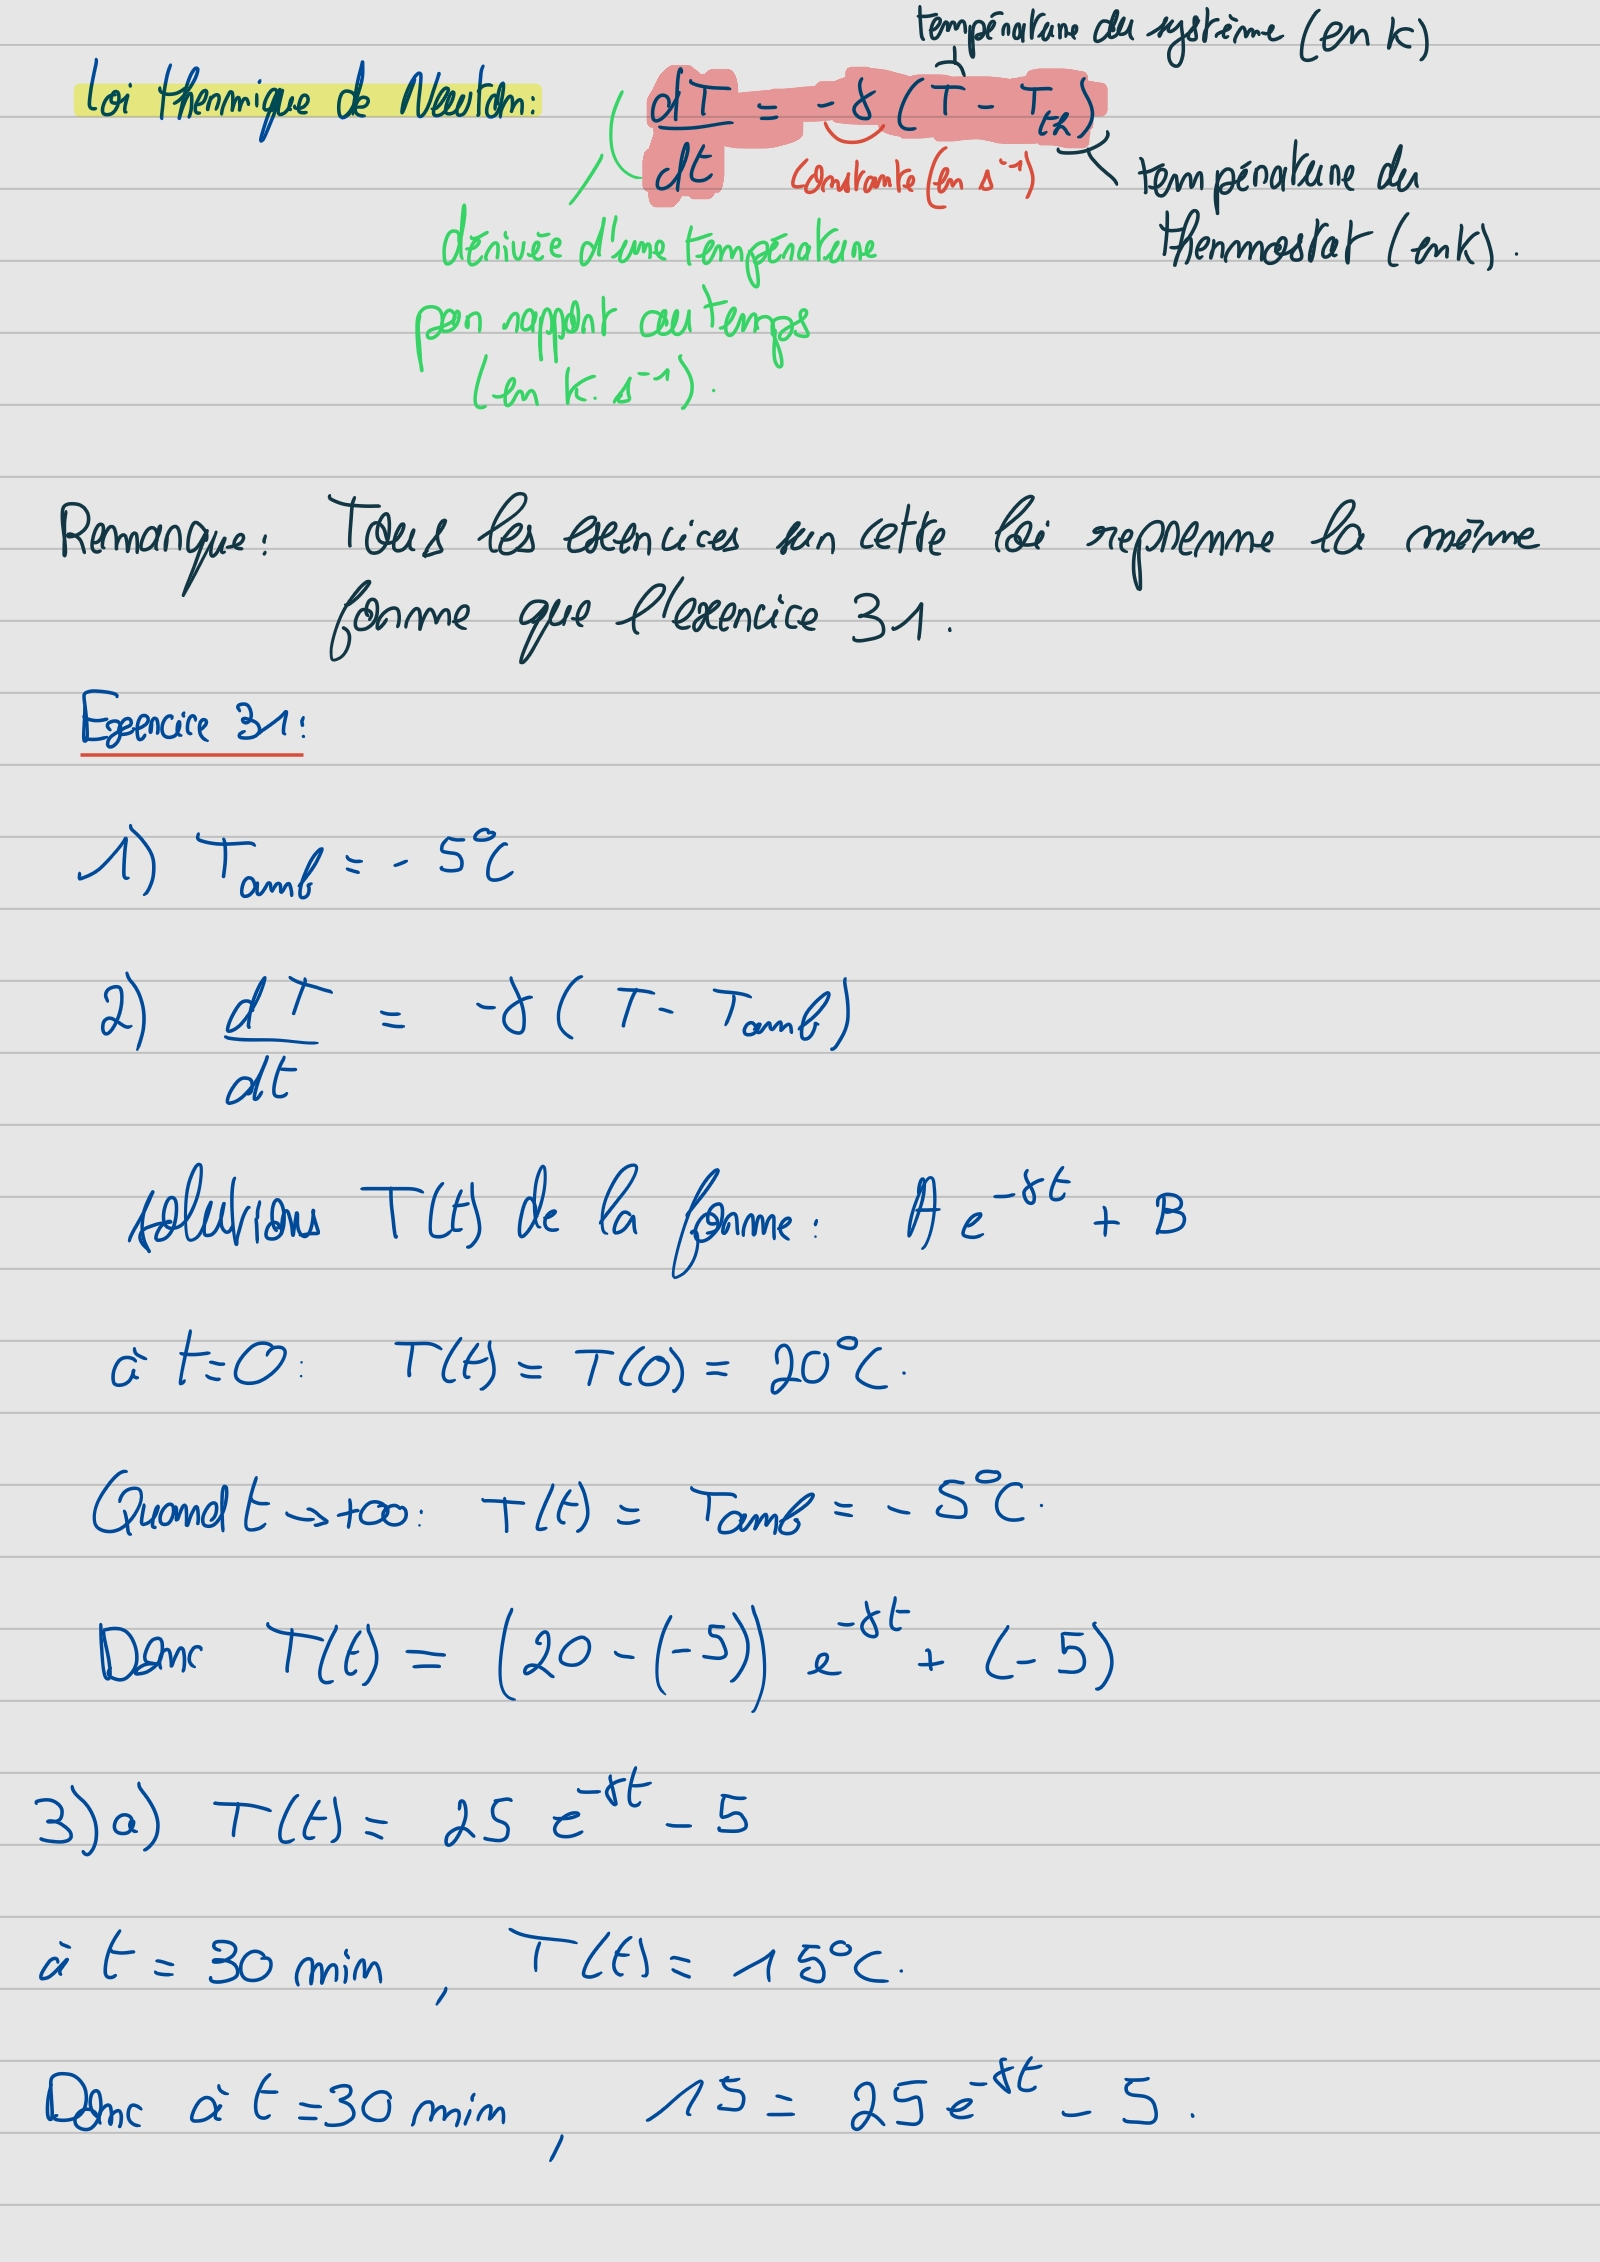 température du système (en K)
Loi thermique de Newton: dT/dt = -γ (T - Tth)
constante (en s⁻¹)
température du
thermostat (en K).
dérivée d'une température
par rapport au temps
(en K.s⁻¹).
Remarque: Tous les exercices sur cette loi reprenne la même
forme que l'exercice 31.
Exercice 31:
1) Tamb = - 5°C
2) dT/dt = -γ ( T - Tamb)
solutions T(t) de la forme: A e^-γt + B
à t=0: T(t) = T(0) = 20°C.
Quand t → +∞: T(t) = Tamb = - 5°C.
Donc T(t) = (20 - (-5)) e^-γt + (-5)
3) a) T(t) = 25 e^-γt - 5
à t = 30 min, T(t) = 15°C.
Donc à t = 30 min, 15 = 25 e^-γt - 5.